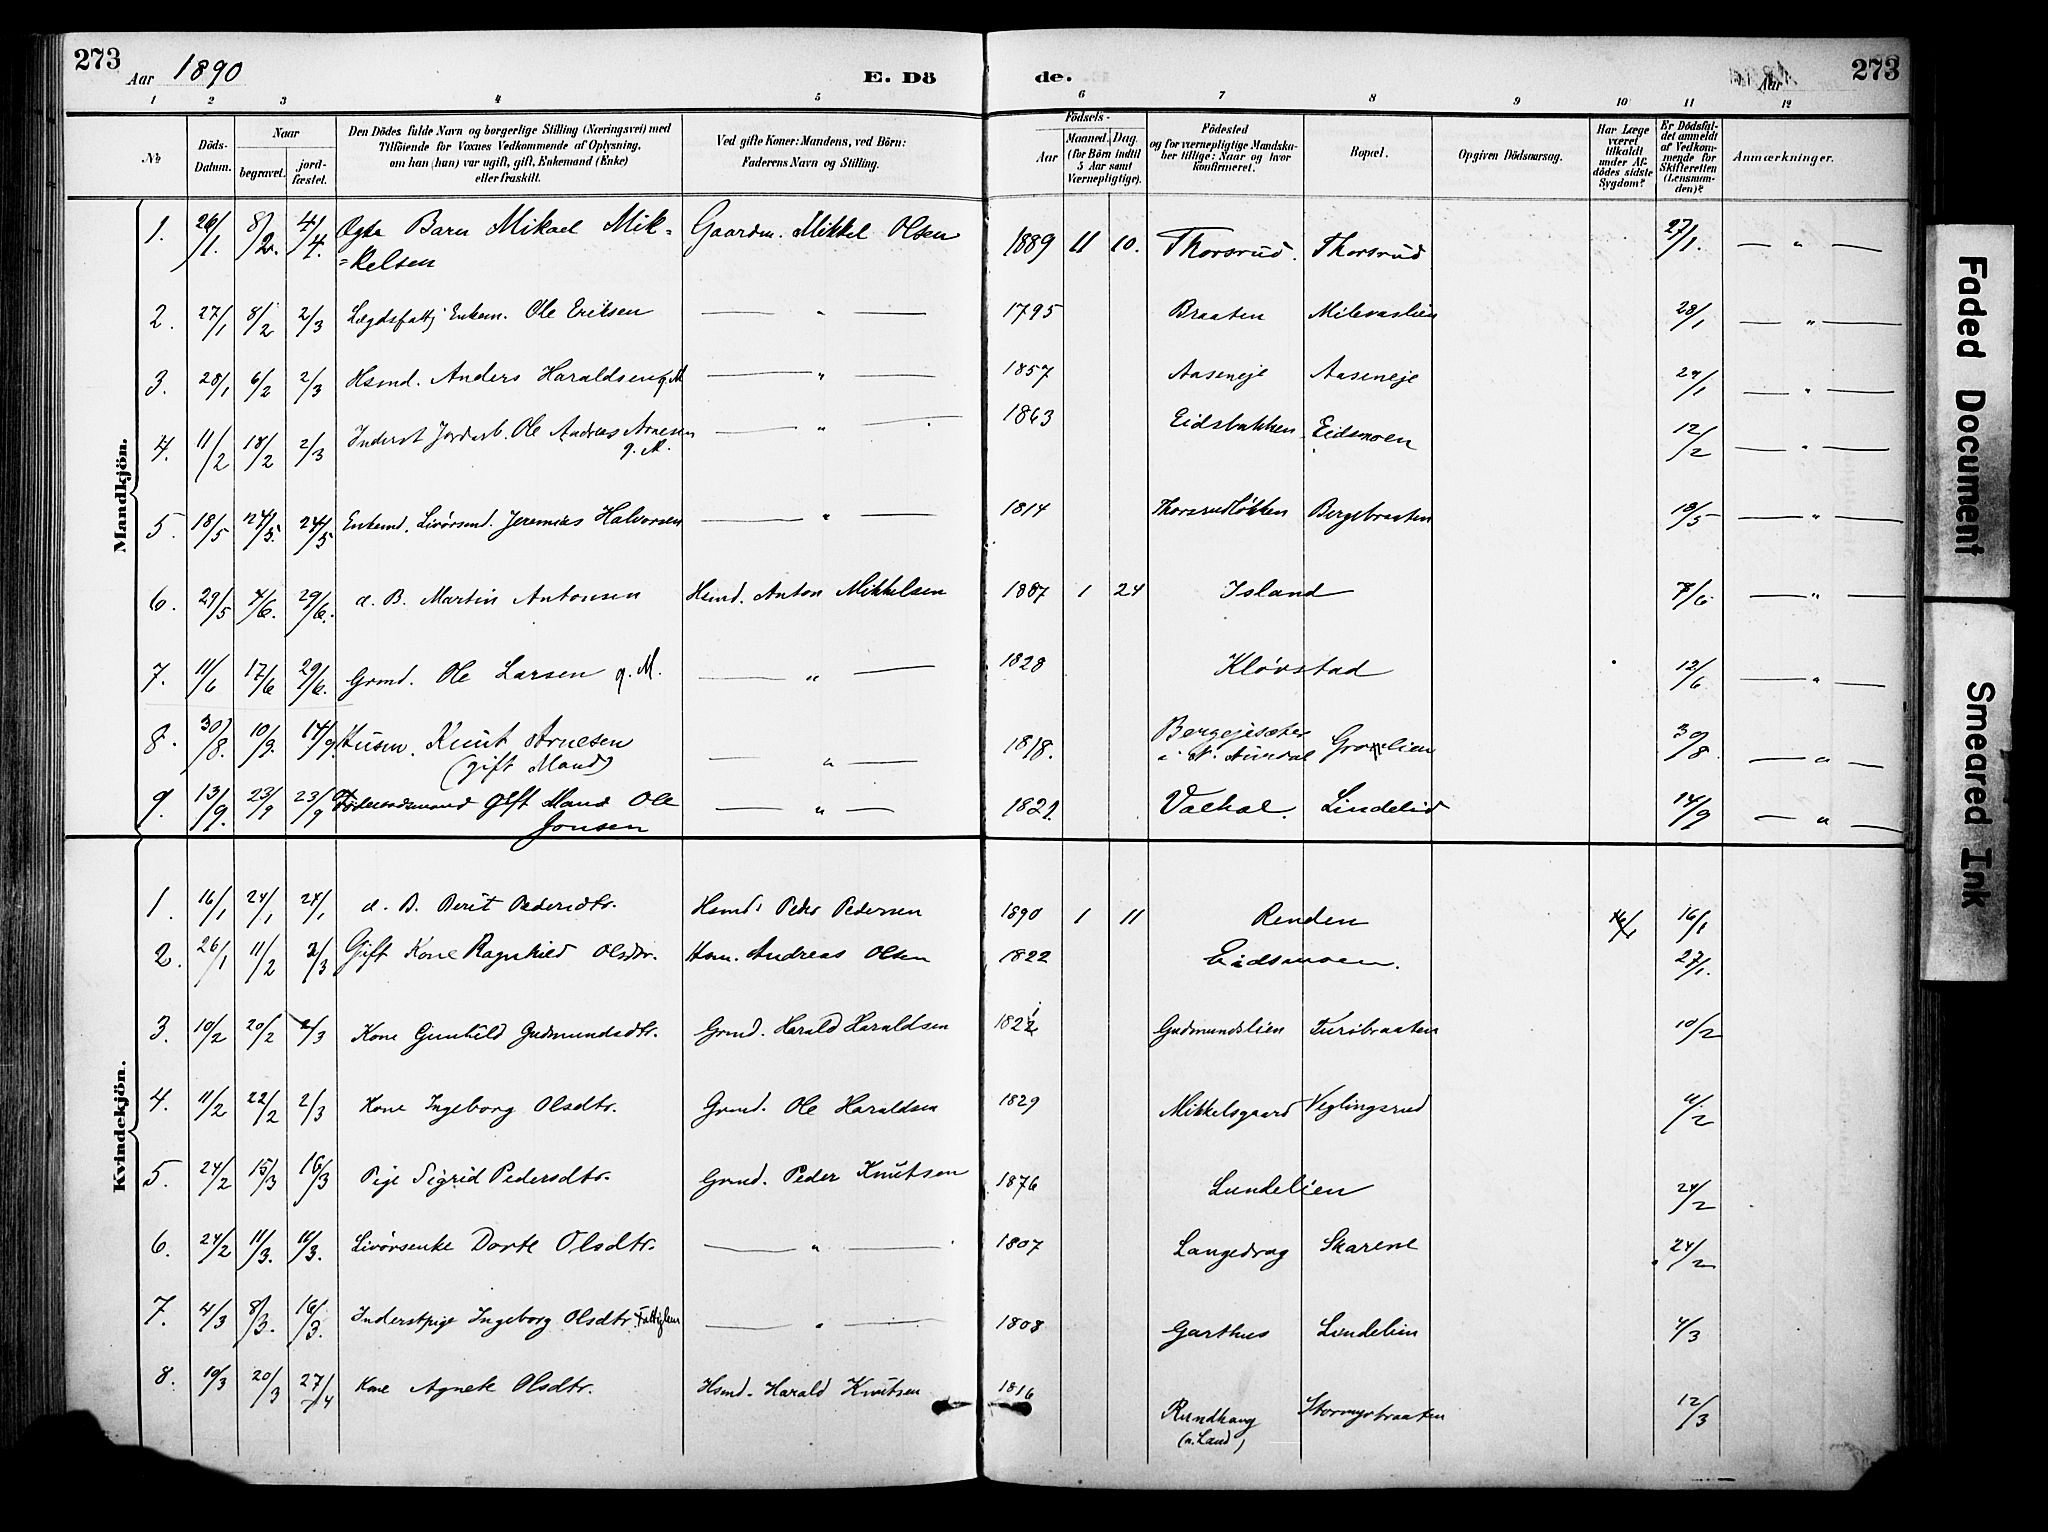 273
Aar 1890
E. Dö
de.
Aar
273
1 2 3 4 5 6 7 8 9 10 11 12
No
Döds-Datum.
Naar
begravet.
jord-fæstet.
Den Dödes fulde Navn og borgerlige Stilling (Næringsvei) med
Tilföiende for Voxnes Vedkommende af Oplysning,
om han (hun) var ugift, gift, Enkemand (Enke)
eller fraskilt.
Ved gifte Koner: Mandens, ved Börn:
Faderens Navn og Stilling.
Födsels-
Aar
Maaned. Dag.
(for Börn indtil
5 Aar samt
Værnepligtige).
Födested
og for værnepligtige Mandska-
ber tillige: Naar og hvor
konfirmeret.
Bopæl.
Opgiven Dödsaarsag.
Har Læge
været
tilkaldt
under Af-
dödes sidste
Sygdom?
Er Dödsfal-
det anmeldt
af Vedkom-
mende for
Skifteretten
(Lensman-
den)?
Anmærkninger.
Mandkjön.
1. 26/1. 8/2. 4/4. Ægte Barn Mikael Mik= Gaardm. Mikkel Olsen 1889 11 10. Thorsrud. Thorsrud 27/1. — " —
=kelsen
2. 27/1 8/2 2/3 Lægdsfattj Enkem. Ole Eriksen — " — 1795 Braaten Milevaslien 28/1 — " —
3. 28/1 6/2 2/3 Hsmd. Anders Haraldsen g.M — " — 1857 Aaseneje Aaseneje 29/1 — " —
4. 11/2 18/2 2/3 Inderst Jordarb. Ole Andreas Arnesen — " — 1863 Eidsbakken Eidsmoen 12/2 — " —
g. M.
5. 18/5 24/5. 24/5 Enkemd. Livörsmd. Jeremias Halvorsen — " — 1814 Thorsrudløkken Bergebraaten 19/5 — " —
6. 29/5 4/6. 29/6. d. B. Martin Antonsen Hsmd. Anton Mikkelsen 1887 1 24 Island 7/6 — " —
7. 11/6 17/6 29/6. Grmd. Ole Larsen g. M. — " — 1828 Kløvstad 12/6 — " —
8. 30/8. 10/9. 14/9. Husm. Knut Arnesen — " — 1818. Bergejisæter
i N. Aurdal 30/8 — " —
(gift Mand)
9. 13/9. 23/9 23/9 Føderaadsmand gift Mand Ole — " — 1821. Valhal. Lindelid 14/9 — " —
Jonsen
Kvindekjön.
1. 16/1 24/1 24/1 d. B. Berit Pedersdtr. Hsmd. Peder Pedersen 1890 1 11 Renden 16/1 16/1
2. 26/1 11/2 2/3 Gift Kone Ragnhild Olsdtr. Hsm. Andreas Olsen 1822 Eidsmoen. 27/1.
3. 10/2 20/2 2/3 Kone Gunhild Gudmundsdtr. Grmd. Harald Haraldsen 1822 Gudmundslien Tursbraaten 10/2
4. 11/2 22/2 2/3 Kone Ingeborg Olsdtr. Grmd. Ole Haraldsen 1829 Mikkelsgaard Veglingsrud 11/2
5. 24/2 15/3 16/3 Pige Sigrid Pedersdtr. Grmd. Peder Knutsen 1876 Lundelien 24/2
6. 24/2 11/3. 16/3. Livörsenke Dorte Olsdtr. — " — 1807 Langedrag Skarene 24/2
7. 4/3 8/3. 16/3. Inderstpige Ingeborg Olsdtr. Fattiglem — " — 1808 Garthus Lindelien 4/3
8. 10/3 20/3 27/4 Kone Agnete Olsdtr. Hsmd. Harald Knutsen 1816 Rundhaug Stormyrbraaten 12/3
(n. Land)
Faded Document
Smeared Ink